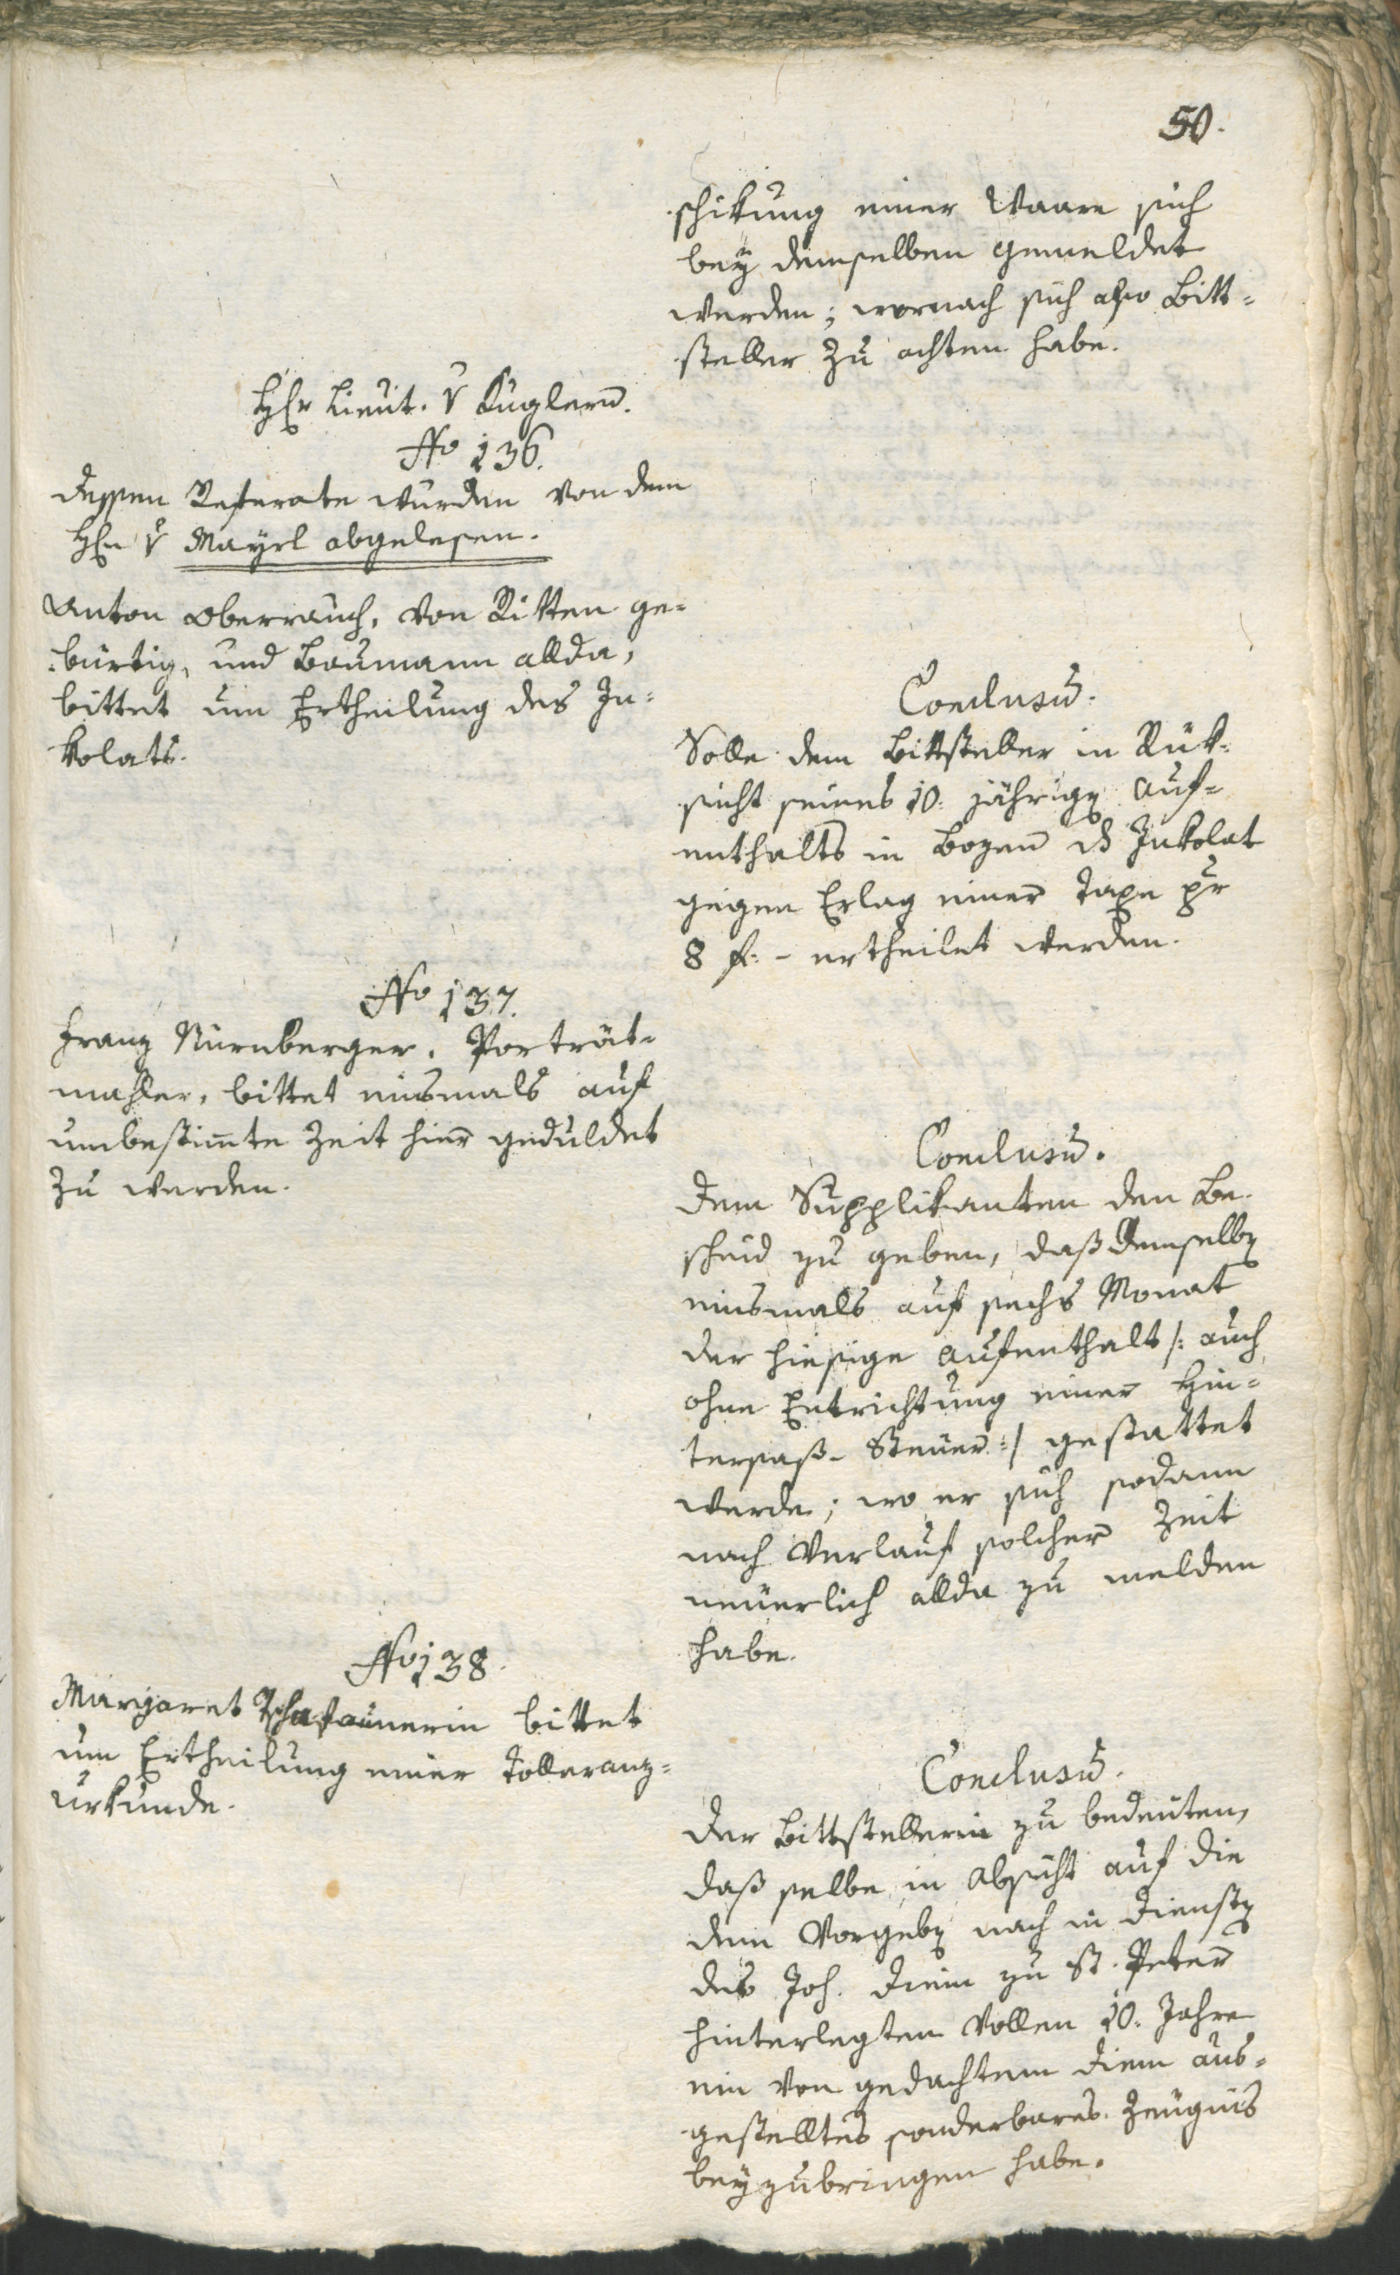 50.
schikung einer Waare sich
bey demselben gemeldet
werden; wornach sich also Bitt-
steller zu achten habe.
Hr Lieut. v Kuglern.
No 136.
dessen Referate wurden von dem
Hn v Mayrl abgelesen.
Anton Oberrauch, von Ritten ge-
bürtig, und Baumann allda,
bittet um Ertheilung des In-
kolats.
Conclusū.
Solle dem Bittsteller in Rük-
sicht seines 10. jährigen Auf-
enthalts in Bozen ds Inkolat
gegen Erlag einer Taxe pr
8 f. - ertheilet werden.
No 137.
Franz Nürnberger, Porträt-
mahler, bittet einsmals auf
unbestim̄te Zeit hier geduldet
zu werden.
Conclusū.
Dem Supplikanten den Be-
scheid zu geben, daß demselben
einsmals auf sechs Monat
der hiesige Aufenthalt /: auch
ohne Entrichtung einer Hin-
tersaß-Steuer :/ gestattet
werde; wo er sich sodann
nach Verlauf solcher Zeit
neuerlich allda zu melden
habe.
No 138.
Margaret Tschafaunerin bittet
um Ertheilung einer Tolleranz-
urkunde.
Conclusū.
Der Bittstellerin zu bedeuten,
daß selbe in Absicht auf die
dem Vorgeben nach in Diensten
des Joh. Diem zu St. Peter
hinterlegten vollen 10. Jahre
ein von gedachtem Diem aus-
gestelltes sonderbares Zeugnis
beyzubringen habe.